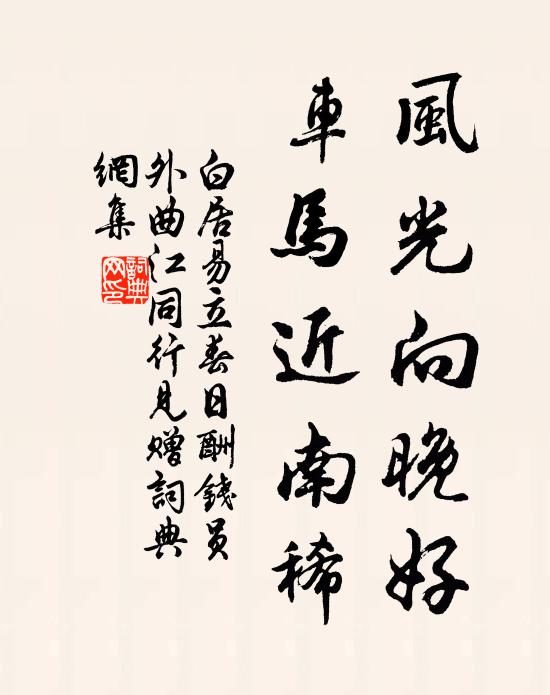 風光向晚好
車馬近南稀
白居易立春日酬錢員
外曲江同行見贈詞典
網集
詞典
网印